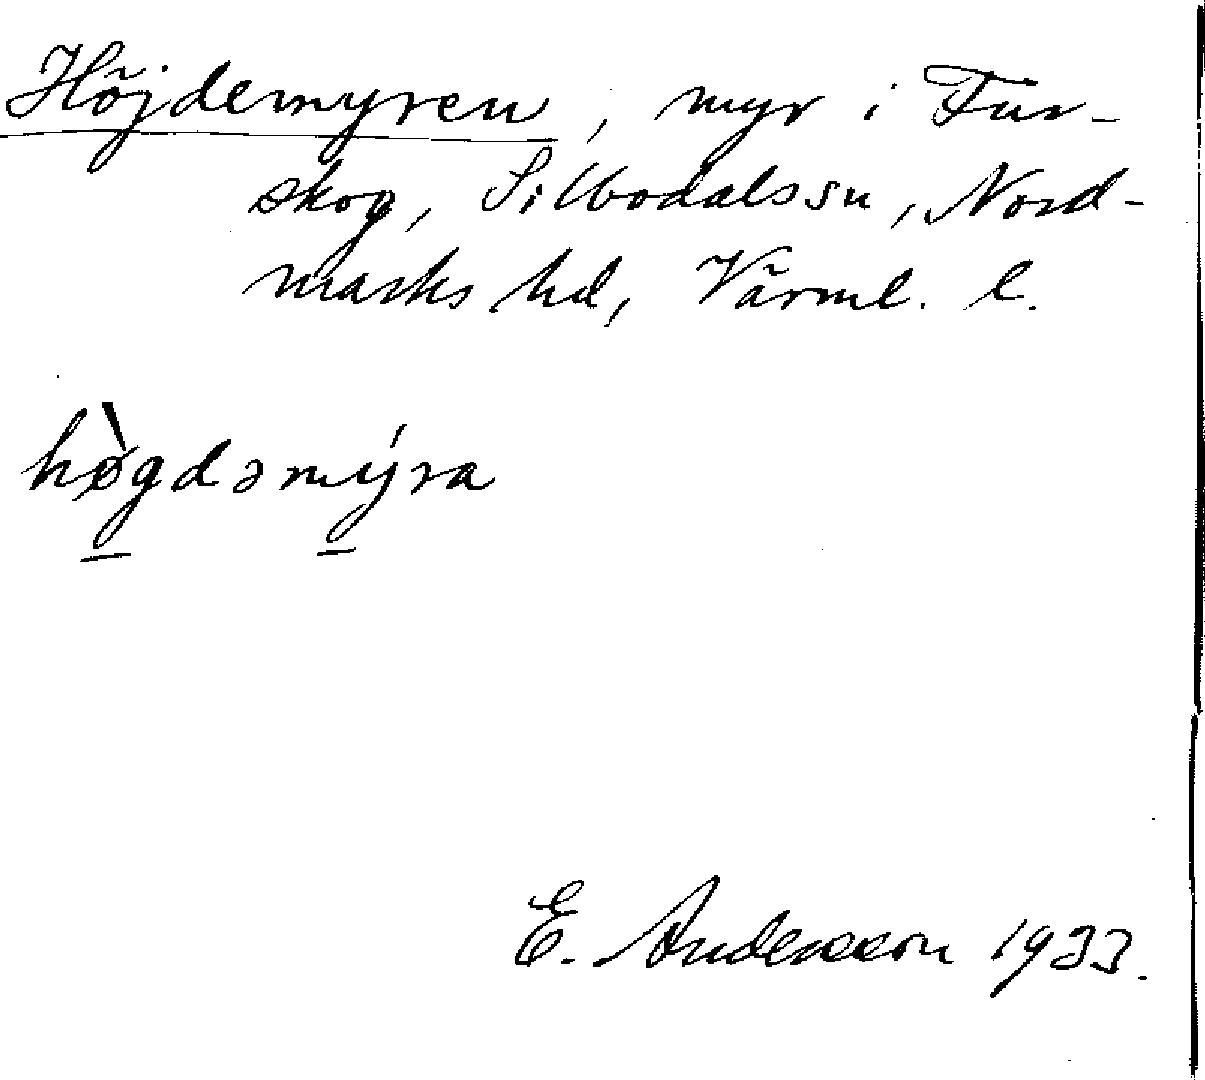 Höjdemyren, myr i Fur-
skog, Silbodalssn, Nord-
marks hd, Värml. l.
hø̀gdəmýra
E. Andersson 1933.